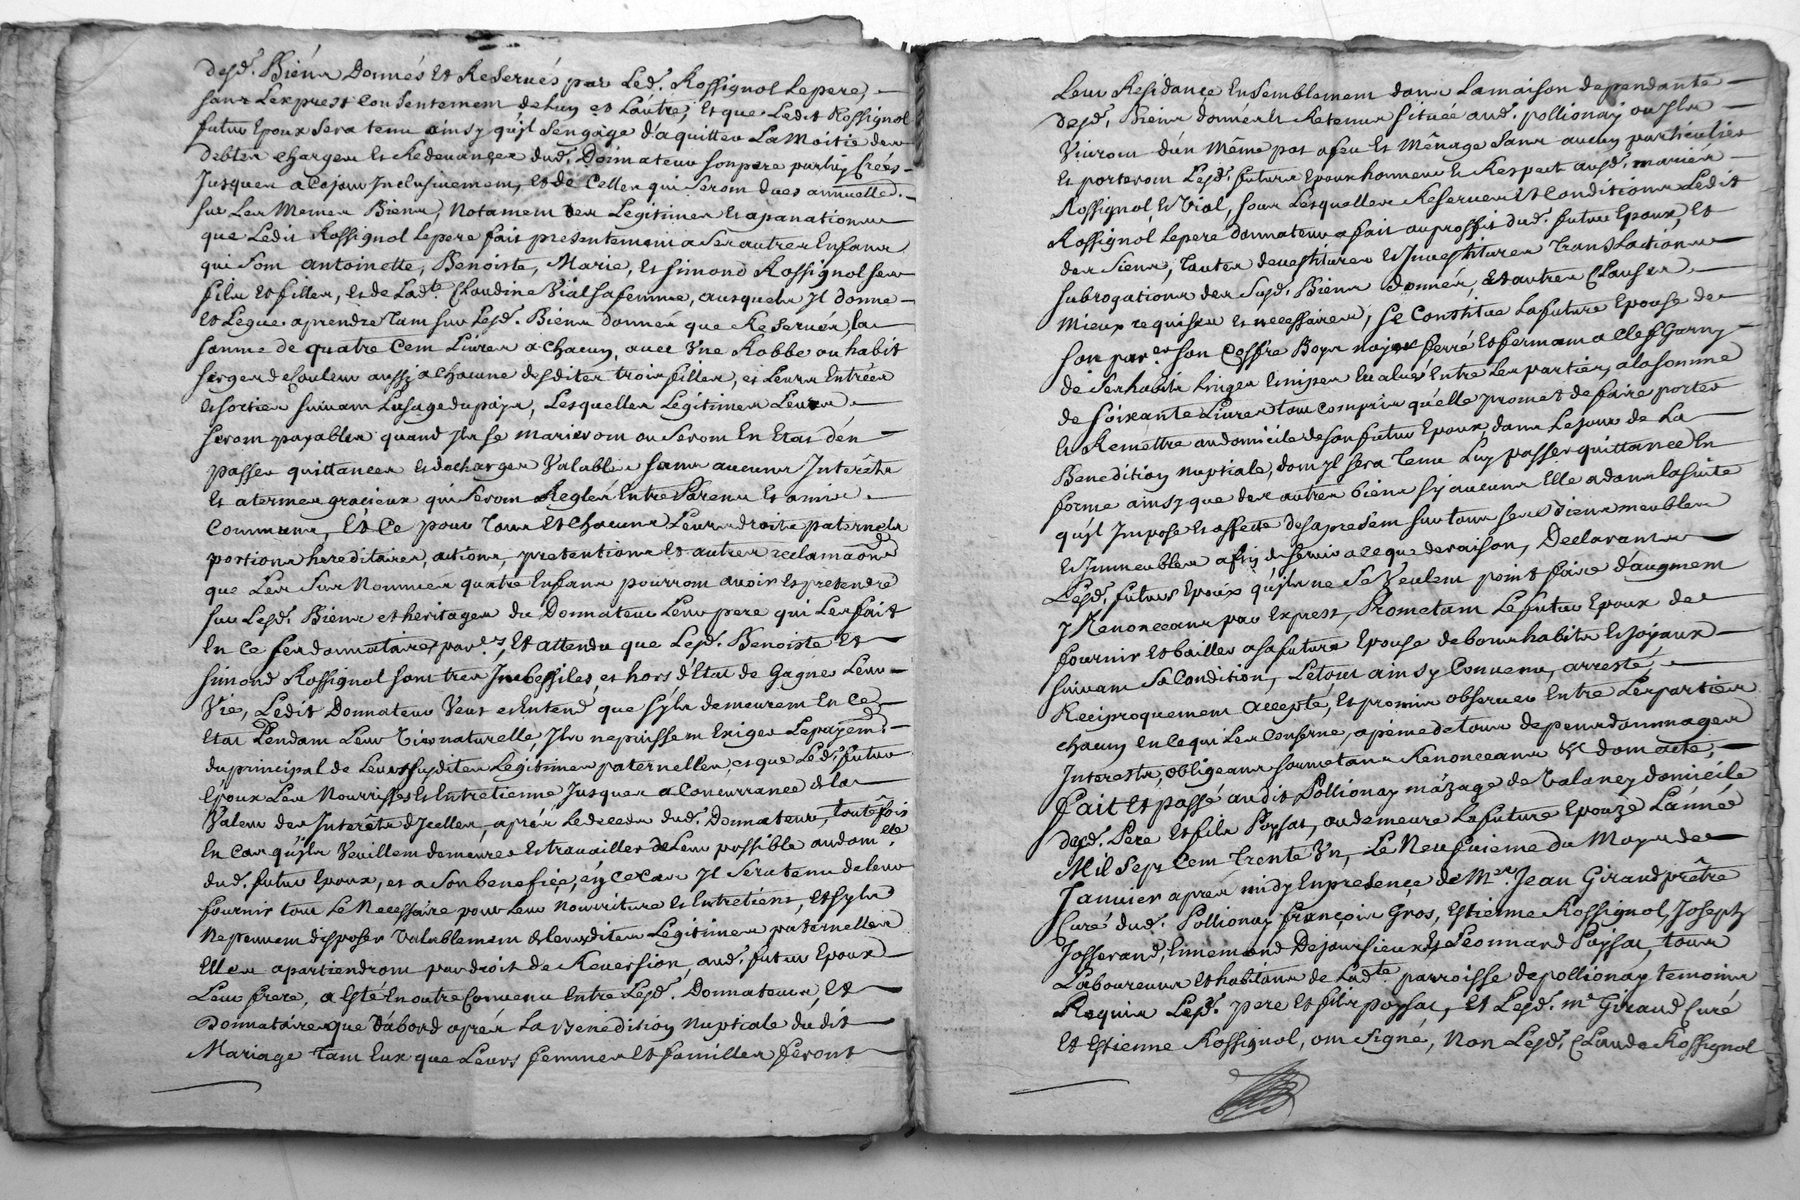 desd. Biens Donnés et Reservés par Led. Rossignol Lepere,
sans L'exprest Consentement de Luy et L'autre, Et que Ledit Rossignol
futur Epoux sera tenu ainsy qu'jl s'engage d'aquitter La Moitié des
debtes charges et Redevances dud. Donnateur son pere par luy Créés
Jusques a Cejour Inclusivement, et de Celles qui seront dues annuelled.
sur Les Memes Biens, Notament des Legitimes et apanations
que Ledit Rossignol Lepere fait presentement a ses autres Enfans
qui sont antoinette, Benoiste, Marie, et simond Rossignol ses
fils et filles, et de Lad.te Claudine Vial sa femme, ausquels Jl donne
et Legue aprendre tant sur Lesd. Biens donnés que Reservés, la
somme de quatre Cent Livres a Chacun, avec Vne Robbe ou habit
serge de Couleur aussy a Chacune desdites trois filles, et Leurs Entrées
et sorties suivant Lusage du païs, Lesquelles Legitimes Leurs
seront payables quand Jls se marieront ou seront En Etat d'en
passer quittances et decharges Valables sans aucuns Interêts
et a termes gracieux qui seront Reglés Entre Parens et amis
Communs, Et Ce pour tous et Chacuns Leurs droits paternels
portions hereditaires, actions, pretentions et autres reclamaõns
que Les sus Nommés quatre Enfans pourront avoir et pretendre
sur Lesd. Biens et heritages du Donnateur Leur pere qui Les fait
En Ce ses donnataires par.ers, Et attendu que Lesd. Benoiste et
simond Rossignol sont tres Inbessiles, et hors d'Etat de Gagne Leur
Vie, Ledit Donnateur Veut et Entend que s'jls demeurent En Ce
Etat Pendant Leur Vie naturelle, Jls ne puissent Exiger Le payemt.
du principal de Leurs susdites Legitimes paternelles, et que Led. futur
Epoux Les Nourrisse et Entretienne Jusques a Concurrance de la
Valeur des Interêts d'Jcelles, aprés Le decedz dud. Donnateur, toutefois
En Cas qu'jls Veuillent demeurer et travailler de Leur possible au dom.cile
dud. futur Epoux, et a son beneficë, en Ce Cas Jl sera tenu de leur
fournir tout Le Necessaire pour Leur Nourriture et Entretiens, Et s'jls
Ne peuvent disposer Valablement de leursdites Legitimes paternelles
Elles apartiendront par droit de Reversion, aud. futur Epoux
Leur frere, a Esté En outre Convenu Entre Lesd. Donnateurs, Et
Donnataires que d'abord aprés La Benediction Nuptiale du dit
Mariage tant Eux que Leurs femmes Et familles feront
Leur Residance Ensemblement dans La maison dependante
desd. Biens donnés et Retenus située aud. pollionay ou Jls
Vivront d'un Même pot a feu et Mênage sans aucun particulier
Et porteront Lesd. futurs Epoux honneur et Respect ausd. mariés
Rossignol et Vial, sous Lesquelles Reserves et Conditions Ledit
Rossignol Lepere donnateur a fait au proffit dud. futur Epoux, et
des siens, toutes devestitures et Investitures translactions
subrogations des susd. Biens donnés, et autres Clauses
Mieux requises et necessaires, se Constitue La future Epouse de
son par.er son Coffre Boys noyer ferré et fermant a Clef Garny
de ses habits Linges et nipes Evalués Entre Les parties, a la somme
de soixante Livres tout compris qu'elle promet de faire porter
et Remettre au domicile de son futur Epoux dans Le jour de La
Benediction nuptiale, dont jl sera tenu Luy passer quittance En
forme ainsy que des autres biens sy aucuns Elle a dans la suite
qu'jl Impose et affecte des apresent sur tous ses Biens meubles
et Immeubles affin de servir a ce que de raison, Declarants
Lesd. futurs Epoux qu'jls ne se Veulent point faire d'augment
y Renonceans par Exprest, Prometant Le futur Epoux de
fournir et bailler a sa future Epouse de bons habits et Joyaux
suivant sa Condition, Le tout ainsy Convenu, arresté,
Reciproquement accepté, et promis observer Entre Les parties
chacun En Ce qui Les Conserne, a peine de tous depens dommages
Interests, obligeans soumetans Renonceans &c dont acte,
Fait Et passé audit Pollionay mázage de Valancy domicile
desd. Pere et fils Poysat, ou demeure La future Epouze L'année
Mil sept Cent trente Vn, Le Neufvieme du Moys de
Janvier apres midy En presence de M.re Jean Giraud prêtre
Curé dud. Pollionay françois Gros, Estienne Rossignol, Joseph
Josserand, Ennemond Dejoursieux Et Leonnard Poysat, tous
Laboureurs et habitans de Lad.te parroisse de pollionay temoins
Requis Lesd. pere et fils poysat, et Lesd. m.e Giraud Curé
et Estienne Rossignol, ont signé, Non Lesd. Claude Rossignol